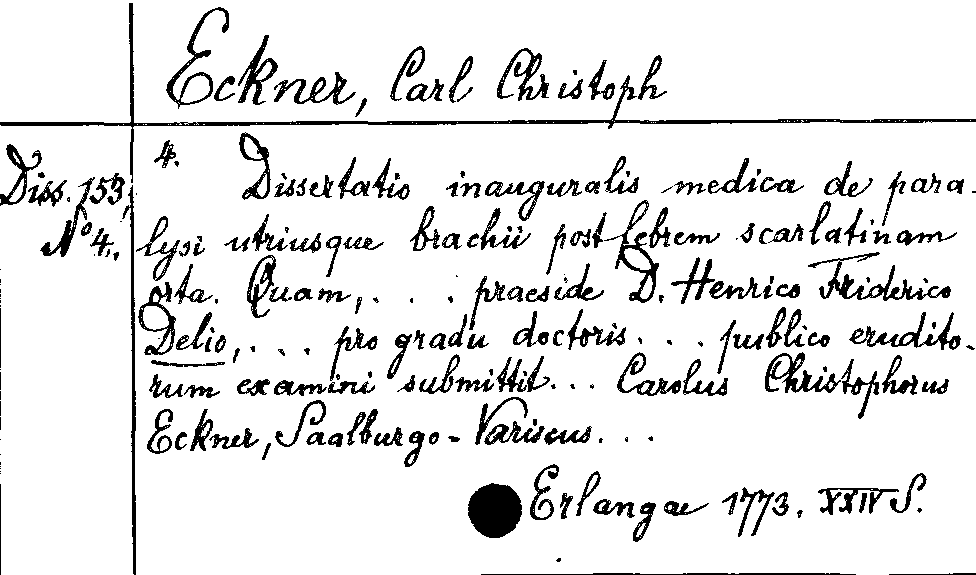 Eckner, Carl Christoph
Diss. 153,
No 4.
4. Dissertatio inauguralis medica de para-
lysi utriusque brachii post febrem scarlatinam
orta. Quam, . . . praeside D. Henrico Friderico
Delio, . . . pro gradu doctoris . . . publico erudito-
rum examini submittit . . . Carolus Christophorus
Eckner, Saalburgo-Variscus . . .
Erlangae 1773. XXIV S.